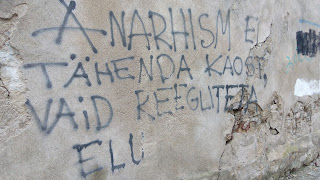 ANARHISM EI
TÄHENDA KAOST,
VAID REEGLITETA
ELU